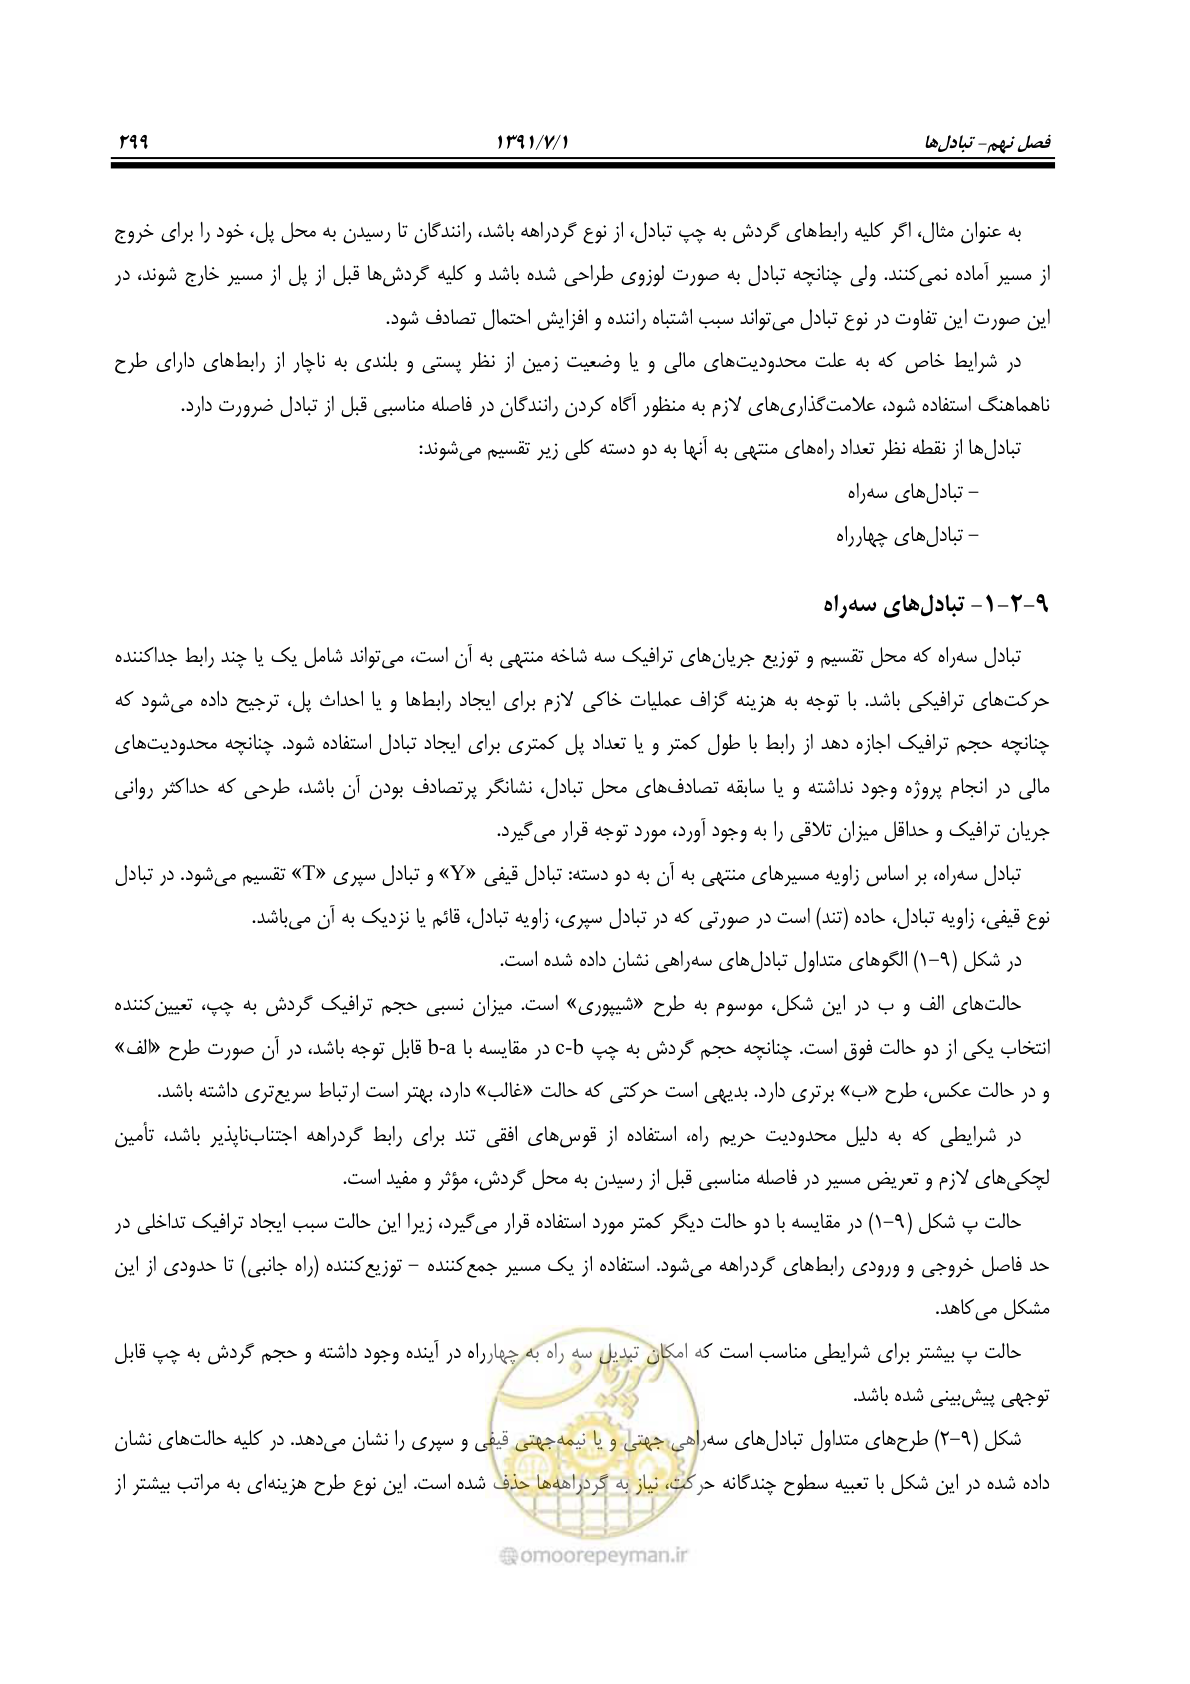 فصل نهم- تبادل‌ها ۱۳۹۱/۷/۱ ۲۹۹
به عنوان مثال، اگر کلیه رابط‌های گردش به چپ تبادل، از نوع گردراهه باشد، رانندگان تا رسیدن به محل پل، خود را برای خروج
از مسیر آماده نمی‌کنند. ولی چنانچه تبادل به صورت لوزوی طراحی شده باشد و کلیه گردش‌ها قبل از پل از مسیر خارج شوند، در
این صورت این تفاوت در نوع تبادل می‌تواند سبب اشتباه راننده و افزایش احتمال تصادف شود.
در شرایط خاص که به علت محدودیت‌های مالی و یا وضعیت زمین از نظر پستی و بلندی به ناچار از رابط‌های دارای طرح
ناهماهنگ استفاده شود، علامت‌گذاری‌های لازم به منظور آگاه کردن رانندگان در فاصله مناسبی قبل از تبادل ضرورت دارد.
تبادل‌ها از نقطه نظر تعداد راه‌های منتهی به آنها به دو دسته کلی زیر تقسیم می‌شوند:
- تبادل‌های سه‌راه
- تبادل‌های چهارراه
۹-۲-۱- تبادل‌های سه‌راه
تبادل سه‌راه که محل تقسیم و توزیع جریان‌های ترافیک سه شاخه منتهی به آن است، می‌تواند شامل یک یا چند رابط جداکننده
حرکت‌های ترافیکی باشد. با توجه به هزینه گزاف عملیات خاکی لازم برای ایجاد رابط‌ها و یا احداث پل، ترجیح داده می‌شود که
چنانچه حجم ترافیک اجازه دهد از رابط با طول کمتر و یا تعداد پل کمتری برای ایجاد تبادل استفاده شود. چنانچه محدودیت‌های
مالی در انجام پروژه وجود نداشته و یا سابقه تصادف‌های محل تبادل، نشانگر پرتصادف بودن آن باشد، طرحی که حداکثر روانی
جریان ترافیک و حداقل میزان تلاقی را به وجود آورد، مورد توجه قرار می‌گیرد.
تبادل سه‌راه، بر اساس زاویه مسیرهای منتهی به آن به دو دسته: تبادل قیفی «Y» و تبادل سپری «T» تقسیم می‌شود. در تبادل
نوع قیفی، زاویه تبادل، حاده (تند) است در صورتی که در تبادل سپری، زاویه تبادل، قائم یا نزدیک به آن می‌باشد.
در شکل (۹-۱) الگوهای متداول تبادل‌های سه‌راهی نشان داده شده است.
حالت‌های الف و ب در این شکل، موسوم به طرح «شیپوری» است. میزان نسبی حجم ترافیک گردش به چپ، تعیین‌کننده
انتخاب یکی از دو حالت فوق است. چنانچه حجم گردش به چپ c-b در مقایسه با b-a قابل توجه باشد، در آن صورت طرح «الف»
و در حالت عکس، طرح «ب» برتری دارد. بدیهی است حرکتی که حالت «غالب» دارد، بهتر است ارتباط سریع‌تری داشته باشد.
در شرایطی که به دلیل محدودیت حریم راه، استفاده از قوس‌های افقی تند برای رابط گردراهه اجتناب‌ناپذیر باشد، تأمین
لچکی‌های لازم و تعریض مسیر در فاصله مناسبی قبل از رسیدن به محل گردش، مؤثر و مفید است.
حالت پ شکل (۹-۱) در مقایسه با دو حالت دیگر کمتر مورد استفاده قرار می‌گیرد، زیرا این حالت سبب ایجاد ترافیک تداخلی در
حد فاصل خروجی و ورودی رابط‌های گردراهه می‌شود. استفاده از یک مسیر جمع‌کننده - توزیع‌کننده (راه جانبی) تا حدودی از این
مشکل می‌کاهد.
حالت پ بیشتر برای شرایطی مناسب است که امکان تبدیل سه راه به چهارراه در آینده وجود داشته و حجم گردش به چپ قابل
توجهی پیش‌بینی شده باشد.
شکل (۹-۲) طرح‌های متداول تبادل‌های سه‌راهی جهتی و یا نیمه‌جهتی قیفی و سپری را نشان می‌دهد. در کلیه حالت‌های نشان
داده شده در این شکل با تعبیه سطوح چندگانه حرکت، نیاز به گردراهه‌ها حذف شده است. این نوع طرح هزینه‌ای به مراتب بیشتر از
امور پیمان
@omoorepeyman.ir